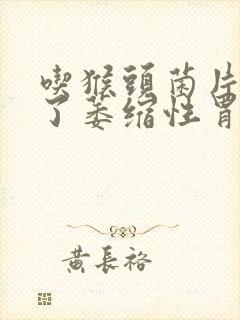 喫猴頭菌片
了萎縮性胃
黃長裕